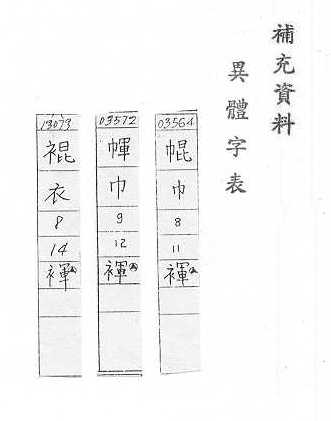 補充資料
異體字表
03564
帵
巾
8
11
褌
03572
幝
巾
9
12
褌
13073
裩
衣
8
14
褌